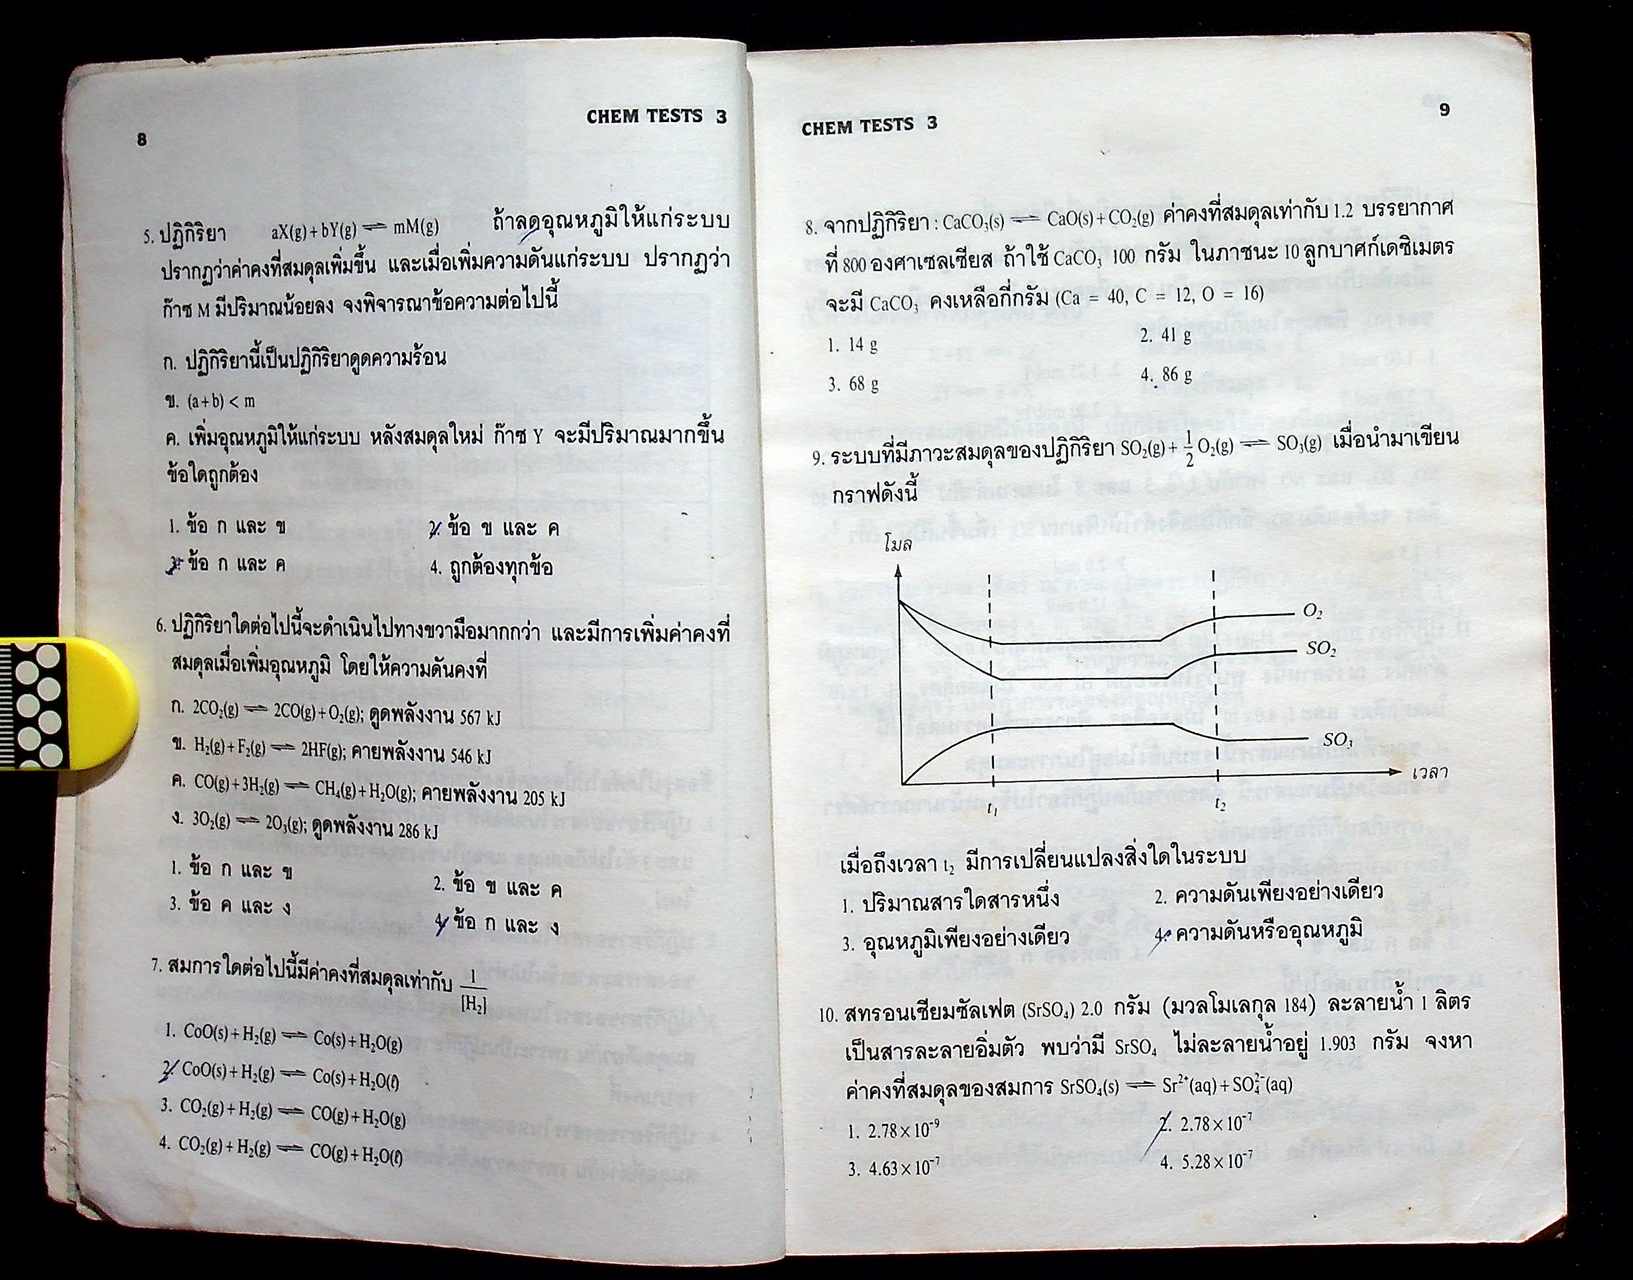 8
CHEM TESTS 3
5. ปฏิกิริยา aX(g) + bY(g) ⇌ mM(g) ถ้าลดอุณหภูมิให้แก่ระบบ
ปรากฏว่าค่าคงที่สมดุลเพิ่มขึ้น และเมื่อเพิ่มความดันแก่ระบบ ปรากฏว่า
ก๊าซ M มีปริมาณน้อยลง จงพิจารณาข้อความต่อไปนี้
ก. ปฏิกิริยานี้เป็นปฏิกิริยาดูดความร้อน
ข. (a + b) < m
ค. เพิ่มอุณหภูมิให้แก่ระบบ หลังสมดุลใหม่ ก๊าซ Y จะมีปริมาณมากขึ้น
ข้อใดถูกต้อง
1. ข้อ ก และ ข 2. ข้อ ข และ ค
3. ข้อ ก และ ค 4. ถูกต้องทุกข้อ
6. ปฏิกิริยาใดต่อไปนี้จะดำเนินไปทางขวามือมากกว่า และมีการเพิ่มค่าคงที่
สมดุลเมื่อเพิ่มอุณหภูมิ โดยให้ความดันคงที่
ก. 2CO₂(g) ⇌ 2CO(g) + O₂(g); ดูดพลังงาน 567 kJ
ข. H₂(g) + F₂(g) ⇌ 2HF(g); คายพลังงาน 546 kJ
ค. CO(g) + 3H₂(g) ⇌ CH₄(g) + H₂O(g); คายพลังงาน 205 kJ
ง. 3O₂(g) ⇌ 2O₃(g); ดูดพลังงาน 286 kJ
1. ข้อ ก และ ข 2. ข้อ ข และ ค
3. ข้อ ค และ ง 4. ข้อ ก และ ง
7. สมการใดต่อไปนี้มีค่าคงที่สมดุลเท่ากับ 1/[H₂]
1. CoO(s) + H₂(g) ⇌ Co(s) + H₂O(g)
2. CoO(s) + H₂(g) ⇌ Co(s) + H₂O(ℓ)
3. CO₂(g) + H₂(g) ⇌ CO(g) + H₂O(g)
4. CO₂(g) + H₂(g) ⇌ CO(g) + H₂O(ℓ)
CHEM TESTS 3
9
8. จากปฏิกิริยา : CaCO₃(s) ⇌ CaO(s) + CO₂(g) ค่าคงที่สมดุลเท่ากับ 1.2 บรรยากาศ
ที่ 800 องศาเซลเซียส ถ้าใช้ CaCO₃ 100 กรัม ในภาชนะ 10 ลูกบาศก์เดซิเมตร
จะมี CaCO₃ คงเหลือกี่กรัม (Ca = 40, C = 12, O = 16)
1. 14 g 2. 41 g
3. 68 g 4. 86 g
9. ระบบที่มีภาวะสมดุลของปฏิกิริยา SO₂(g) + 1/2 O₂(g) ⇌ SO₃(g) เมื่อนำมาเขียน
กราฟดังนี้
โมล
O₂
SO₂
SO₃
เวลา
t₁ t₂
เมื่อถึงเวลา t₂ มีการเปลี่ยนแปลงสิ่งใดในระบบ
1. ปริมาณสารใดสารหนึ่ง 2. ความดันเพียงอย่างเดียว
3. อุณหภูมิเพียงอย่างเดียว 4. ความดันหรืออุณหภูมิ
10. สทรอนเชียมซัลเฟต (SrSO₄) 2.0 กรัม (มวลโมเลกุล 184) ละลายน้ำ 1 ลิตร
เป็นสารละลายอิ่มตัว พบว่ามี SrSO₄ ไม่ละลายน้ำอยู่ 1.903 กรัม จงหา
ค่าคงที่สมดุลของสมการ SrSO₄(s) ⇌ Sr²⁺(aq) + SO₄²⁻(aq)
1. 2.78 × 10⁻⁹ 2. 2.78 × 10⁻⁷
3. 4.63 × 10⁻⁷ 4. 5.28 × 10⁻⁷